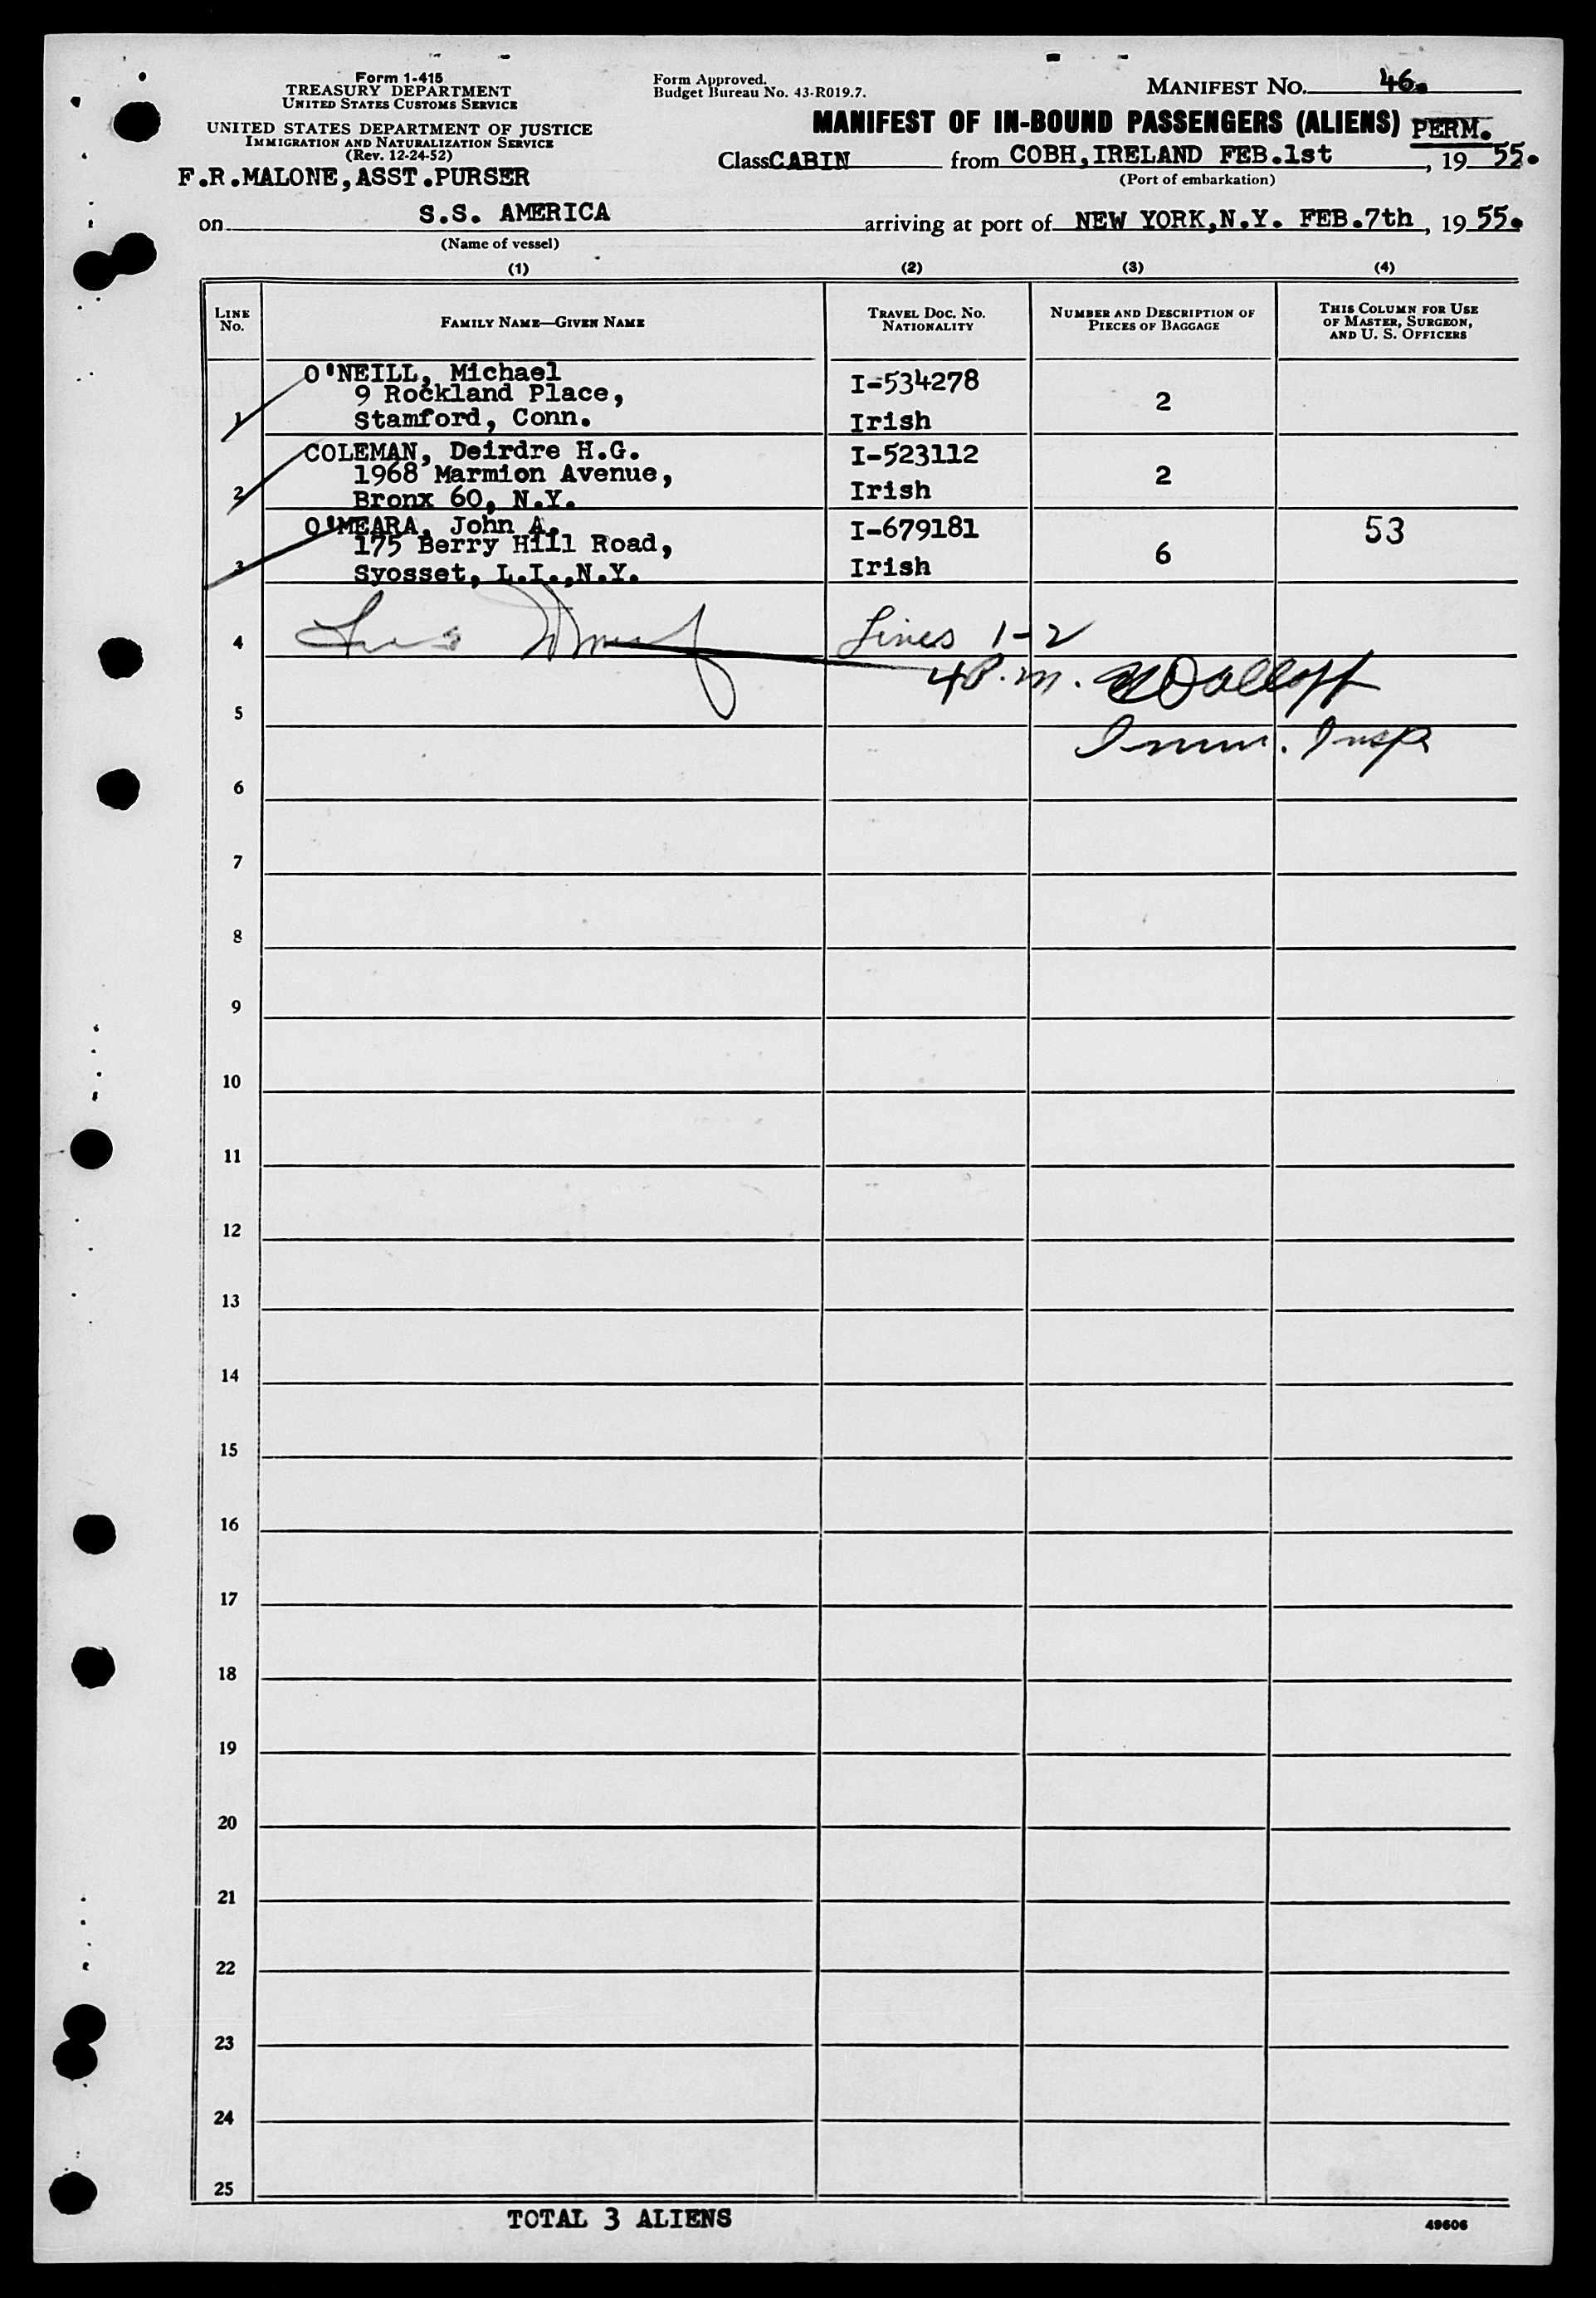 Form 1-415
TREASURY DEPARTMENT
UNITED STATES CUSTOMS SERVICE
UNITED STATES DEPARTMENT OF JUSTICE
IMMIGRATION AND NATURALIZATION SERVICE
(Rev. 12-24-52)
F.R.MALONE,ASST.PURSER
Form Approved.
Budget Bureau No. 43-R019.7.
MANIFEST NO. 46.
MANIFEST OF IN-BOUND PASSENGERS (ALIENS) PERM.
Class CABIN from COBH,IRELAND FEB.1st, 19 55.
(Port of embarkation)
on S.S. AMERICA arriving at port of NEW YORK,N.Y. FEB.7th, 19 55.
(Name of vessel)
(1) (2) (3) (4)
LINE NO. FAMILY NAME—GIVEN NAME TRAVEL DOC. NO. NATIONALITY NUMBER AND DESCRIPTION OF PIECES OF BAGGAGE THIS COLUMN FOR USE OF MASTER, SURGEON, AND U. S. OFFICERS
O'NEILL, Michael I-534278
9 Rockland Place, 2
1 Stamford, Conn. Irish
COLEMAN, Deirdre H.G. I-523112
1968 Marmion Avenue, 2
2 Bronx 60, N.Y. Irish
O'MEARA, John A. I-679181 53
175 Berry Hill Road, 6
3 Syosset, L.I.,N.Y. Irish
4 Lines 1-2
4 P.m.
5
Imm. Insp
6
7
8
9
10
11
12
13
14
15
16
17
18
19
20
21
22
23
24
25
TOTAL 3 ALIENS
49606